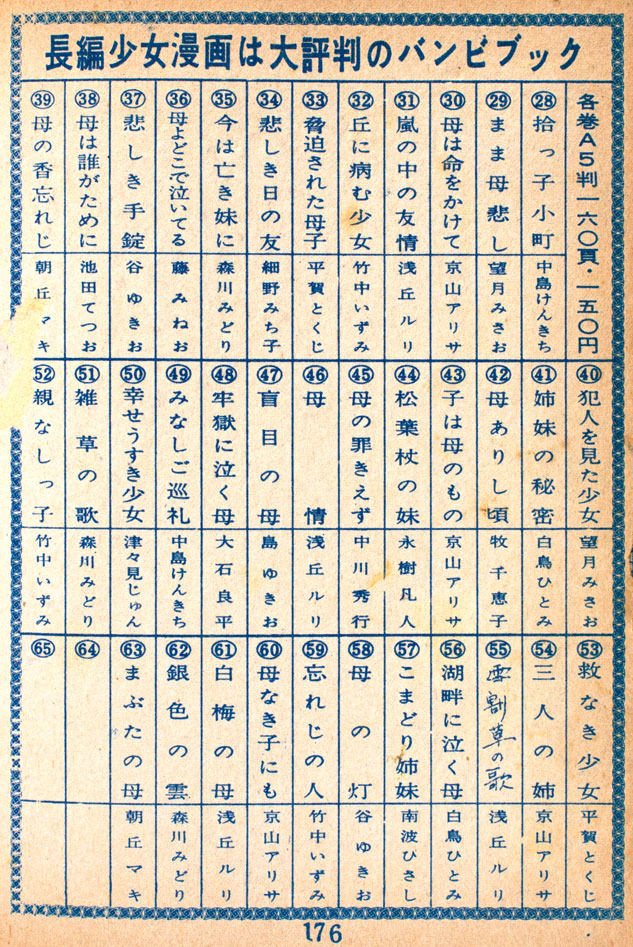 長編少女漫画は大評判のバンビブック
各巻A5判一六〇頁・一五〇円
㉘拾っ子小町 中島けんきち
㉙まま母悲し 望月みさお
㉚母は命をかけて 京山アリサ
㉛嵐の中の友情 浅丘ルリ
㉜丘に病む少女 竹中いずみ
㉝脅迫された母子 平賀とくじ
㉞悲しき日の友 細野みち子
㉟今は亡き妹に 森川みどり
㊱母よどこで泣いてる 藤みねお
㊲悲しき手錠 谷ゆきお
㊳母は誰がために 池田てつお
㊴母の香忘れじ 朝丘マキ
㊵犯人を見た少女 望月みさお
㊶姉妹の秘密 白鳥ひとみ
㊷母ありし頃 牧千恵子
㊸子は母のもの 京山アリサ
㊹松葉杖の妹 永樹凡人
㊺母の罪きえず 中川秀行
㊻母情 浅丘ルリ
㊼盲目の母 島ゆきお
㊽牢獄に泣く母 大石良平
㊾みなしご巡礼 中島けんきち
㊿幸せうすき少女 津々見じゅん
51雑草の歌 森川みどり
52親なしっ子 竹中いずみ
53救なき少女 平賀とくじ
54三人の姉 京山アリサ
55雪割草の歌 浅丘ルリ
56湖畔に泣く母 白鳥ひとみ
57こまどり姉妹 南波ひさし
58母の灯 谷ゆきお
59忘れじの人 竹中いずみ
60母なき子にも 京山アリサ
61白梅の母 浅丘ルリ
62銀色の雲 森川みどり
63まぶたの母 朝丘マキ
64
65
176